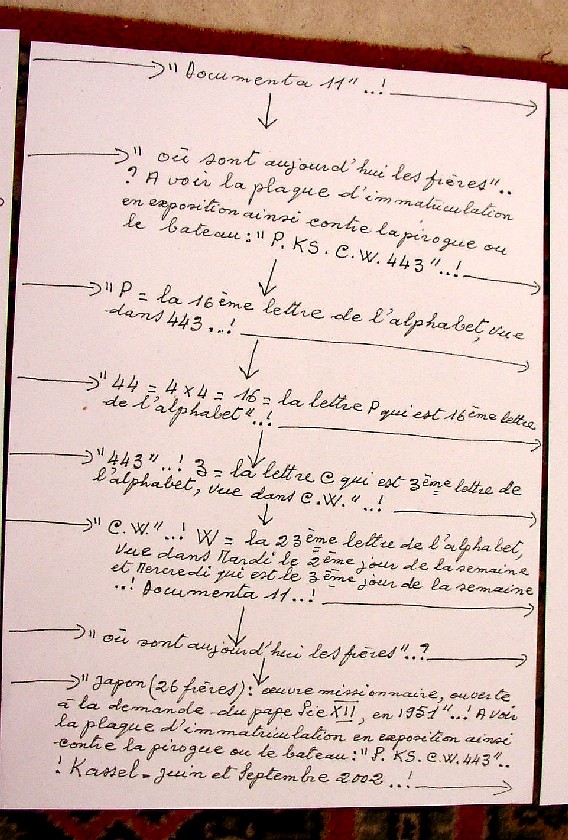 " Documenta 11"..!
" où sont aujourd'hui les frères"..
? A voir la plaque d'immatriculation
en exposition ainsi contre la pirogue ou
le bateau : " P. KS. C.W. 443"..!
" P = la 16ème lettre de l'alphabet, vue
dans 443...!
" 44 = 4 x 4 = 16 = la lettre P qui est 16ème lettre
de l'alphabet"..!
" 443"..! 3 = la lettre C qui est 3ème lettre de
l'alphabet, vue dans C.W."..!
" C.W."..! W = la 23ème lettre de l'alphabet,
vue dans Mardi le 2ème jour de la semaine
et Mercredi qui est le 3ème jour de la semaine
..! Documenta 11...!
" où sont aujourd'hui les frères"..?
" Japon (26 frères) : œuvre missionnaire, ouverte
à la demande du pape Pie XII, en 1951"..! A voir
la plaque d'immatriculation en exposition ainsi
contre la pirogue ou le bateau : " P. KS. C.W. 443"..
! Kassel - Juin et Septembre 2002...!